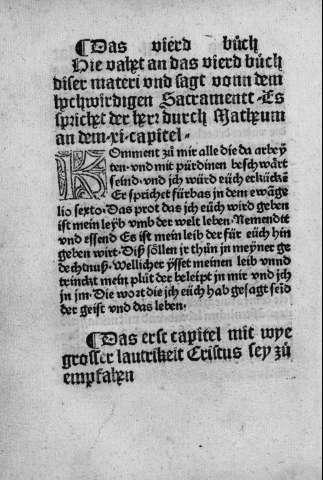 ¶Das vierd bůch
Hie vahꝛt an das vierd bůch
diser materi vnd sagt vonn dem
hochwirdigen Sacramentt · Es
sprichet der her: durch Matheum
an dem · xi · capitel ·
KOmment zů mir alle die da arbey
ten · vnd mit pürdinen beschwärt
seind · vnd jch würd eüch erkücke
Er sprichet fürbas in dem ewãge
lio sexto · Das prot das jch eüch wird geben
ist mein leyb vmb der welt leben · Nemendtt
vnd essend Es ist mein leib der für eüch hin
geben wirt · Diß söllen jr thůn in meyner ge
dechtnuß · Wellicher ysset meinen leib vnnd
trinckt mein plůt der beleipt jn mir vnd jch
in jm · Die wort die jch eüch hab gesagt seid
der geist vnd das leben ·
¶Das erst capitel mit wye
grosser lautrikeit Cristus sey zů
empfahen